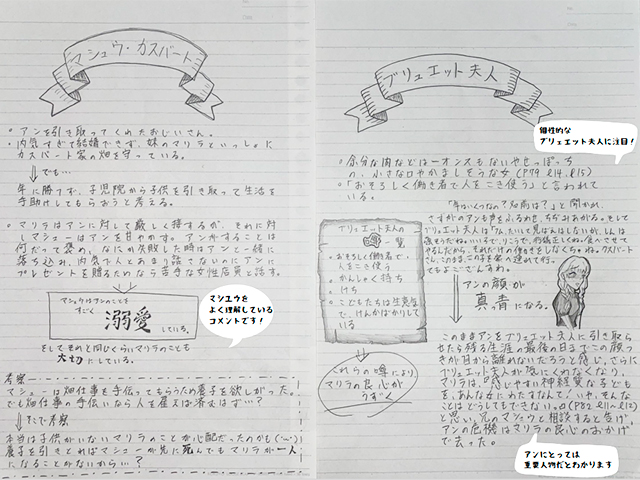 マシュウ・カスバート
・アンを引き取ってくれたおじいさん。
・内気すぎて結婚できず、妹のマリラといっしょに
カスバート家の畑を守っている。
でも…
年に勝てず、子児院から子供を引き取って生活を
手助けしてもらおうと考える。
・マリラはアンに対して厳しく接するが、それに対
しマシューはアンを甘やかす。アンがすることは
何だって褒め、なにか失敗した時はアンと一緒に
落ち込み、内気で人とあまり話さないのにアンに
プレゼントを贈るためなら苦手な女性店員と話す。
マシュウはアンのことを
すごく
溺愛
している。
マシュウを
よく理解している
コメントです！
そしてそれと同じくらいマリラのことも
大切にしている。
考察
マシューは畑仕事を手伝ってもらうため養子を欲しがった。
でも畑仕事の手伝いなら人を雇えば済むはず…？
そこで考察
本当は子供がいないマリラのことが心配だったのかも
養子を引きとればマシューが先に死んでもマリラが一人
になることがないから…？
ブリュエット夫人
個性的な
ブリュエット夫人に注目！
・余分な肉などは一オンスもないやせっぽっち
の、小さな口やかましそうな女（P79 l14、l15）
・「おそろしく働き者で人をこき使う」と言われて
いる。
「年はいくつなの？名前は？」と聞かれ、
さすがのアンも声をふるわせ、ちぢみあがる。そして
ブリュエット夫人の
一覧
・おそろしく働き者で
人をこき使う
・かんしゃく持ち
・けち
・こどもたちは生意気
で、けんかばかりして
いる
アンの顔が
真青になる。
これらの噂により
マリラの良心が
うずく
このままアンをブリュエット夫人に引き取ら
せたら残る生涯の最後の日までこの顔つ
きが目から離れないだろうと感じ、さらに
ブリュエット夫人が気にくわなくなり、
マリラは、「感じやすい神経質な子ども
を、あんな女にわたすなんて！いや、そんな
ことはどうしてもできない。」（P82、l11~l12）
と思い、兄のマシュウと相談すると告げ、
アンの危機はマリラの良心のおかげ
で去った。
アンにとっては
重要人物だとわかります